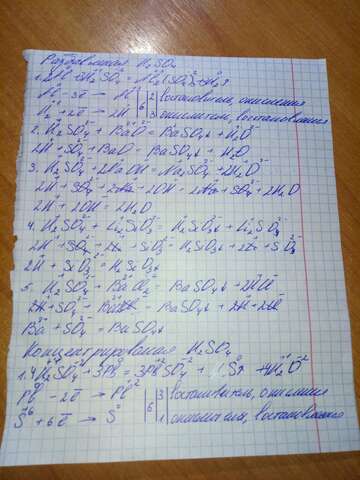 Разбавленная H₂SO₄
1. 2Al + H₂SO₄ = Al₂(SO₄)₃ + H₂↑
Al⁰ - 3ē → Al⁺³ | 2 восстановитель, окисления
H₂ + 2ē → 2H | 6 | 3 окислитель, восстановления
2. H₂SO₄ + BaO = BaSO₄↓ + H₂O
2H + SO₄ + BaO = BaSO₄↓ + H₂O
3. H₂SO₄ + 2NaOH = Na₂SO₄ + 2H₂O
2H + SO₄ + 2Na + 2OH = 2Na + SO₄ + 2H₂O
2H⁺ + 2OH⁻ = 2H₂O
4. H₂SO₄ + Li₂SiO₃ = H₂SiO₃↓ + Li₂SO₄
2H + SO₄ + 2Li + SiO₃ = H₂SiO₃↓ + 2Li + SO₄
2H + SiO₃ = H₂SiO₃↓
5. H₂SO₄ + BaCl₂ = BaSO₄↓ + 2HCl
2H + SO₄ + Ba + 2Cl = BaSO₄↓ + 2H + 2Cl
Ba + SO₄ = BaSO₄↓
Концентрированная H₂SO₄
1. 4H₂SO₄ + 3Pb = 3PbSO₄ + S↓ + 4H₂O
Pb⁰ - 2ē → Pb⁺² | 3 восстановитель, окисления
S⁺⁶ + 6ē → S⁰ | 6 | 1 окислитель, восстановления